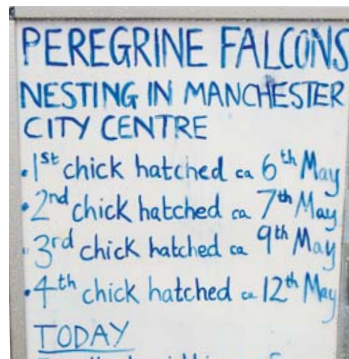 PEREGRINE FALCONS
NESTING IN MANCHESTER
CITY CENTRE
•1st chick hatched ca 6th May
•2nd chick hatched ca 7th May
•3rd chick hatched ca 9th May
•4th chick hatched ca 12th May
TODAY